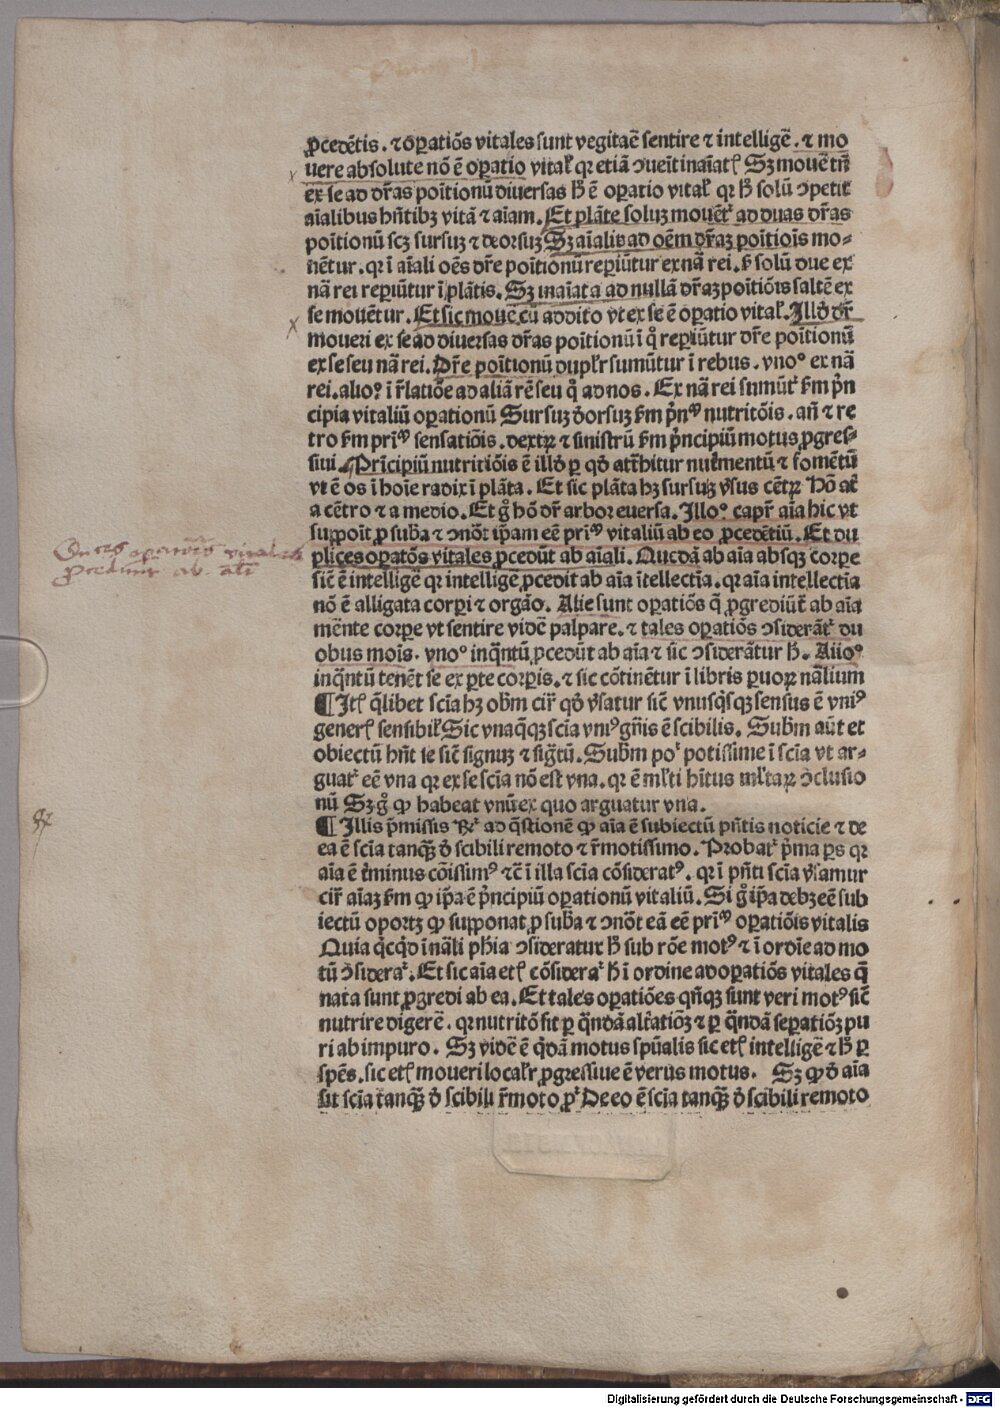 ꝓcedētis. ⁊ oꝑatiōs vitales sunt vegitaē sentire ⁊ intelligē. ⁊ mo
uere absolute nō ē oꝑatio vital̓ qꝛ etiā ↄueīt inaīatꝭ Sꝫ mouē tn̄
ex se ad dr̄as poītionū diuersas h̄ ē oꝑatio vital̓ qꝛ h̄ solū ↄpetit
aīalibus hn̄tibꝫ vitā ⁊ aīam. Et plāte soluꝫ mouēt᷑ ad duas dr̄as
poītionū scꝫ sursuꝫ ⁊ deorsuꝫ Sꝫ aīalia ad oēm dr̄aꝫ poītiois mo⸗
uētur. qꝛ ī aīali oēs dr̄e poītionū reꝑiūtur ex nā rei. ꝟ solū due ex
nā rei reꝑiūtur ī plātis. Sꝫ inaīata ad nullā dr̄aꝫ poītiōis saltē ex
se mouētur. Et sic mouē cū addito vt ex se ē oꝑatio vital̓. Illd̓ dr̄
moueri ex se ad diuersas dr̄as poītionū ī qͦ reꝑiūtur dr̄e poītionū
ex se seu nā rei. Dr̄e poītionū duplr̄ sumūtur ī rebus. vnoº ex nā
rei. alioº ī r̄latiōe ad aliā rē seu qͦ ad nos. Ex nā rei sumūt᷑ ẜm pͥn
cipia vitaliū oꝑationū Sursuꝫ d̓orsuꝫ ẜm pͥnᵐ nutritōis. añ ⁊ re
tro ẜm priᵐ sensatiōis. dextꝝ ⁊ sinistrū ẜm pͥncipiū motus ꝓgres⸗
siui. Prīcipiū nutritiōis ē illd̓ ꝑ qd̓ att̄hitur nut̓mentū ⁊ fomētū
vt ē os ī hoīe radix ī plāta. Et sic plāta hꝫ sursuꝫ ꝟsus cētꝝ Hō at̓
a cētro ⁊ a medio. Et gͦ hō dr̄ arbor euersa. Illoº capr̄ aīa hic vt
supꝑoīt ꝓ sub̄a ⁊ ↄnōt ip̄am eē priᵐ vitaliū ab eo ꝓcedētiū. Et du
plices oꝑatōs vitales ꝓcedūt ab aīali. Quedā ab aīa absqꝫ corpe
sic̄ ē intelligē qꝛ intelligē ꝓcedit ab aīa ītellectīa. qꝛ aīa intellectīa
nō ē alligata corꝑi ⁊ orgāo. Alie sunt oꝑatiōs q̄ ꝓgrediūt᷑ ab aīa
mēnte corpe vt sentire vidē palpare. ⁊ tales oꝑatiōs ↄsiderāt᷑ du
obus moīs. vnoº inq̄ntū ꝓcedūt ab aīa ⁊ sic̄ ↄsiderātur h̄. Aiioº
inq̄ntū tenēt se ex ꝑte corꝑis. ⁊ sic cōtinētur ī libris ꝑuoꝝ nālium
¶ Itꝭ q̄libet scīa hꝫ ob̄m cir̓ qd̓ ꝟsatur sic̄ vnusqͥsqꝫ sensus ē vniꝰ
generꝭ sensibil̓ Sic vnaq̄qꝫ scīa vniꝰ gn̄is ē scibilis. Sub̄m aūt et
obiectū hn̄t se sic̄ signuꝫ ⁊ sig̓tū. Sub̄m po᷑ potissime ī scīa vt ar⸗
guat᷑ eē vna qꝛ ex se scīa nō est vna. qꝛ ē ml̓ti hītus ml̓taꝝ ↄclusio
nū Sꝫ gͦ ꝙ habeat vnū ex quo arguatur vna.
¶ Illis p̄missis ad q̄stionē ꝙ aīa ē subiectū pn̄tis noticie ⁊ de
ea ē scīa tanqꝫ̄ d̓ scibili remoto ⁊ r̄motissimo. Probat᷑ pͥma ꝑs qꝛ
aīa ē t̓minus cōissimꝰ ⁊c̄ ī illa scīa cōsideratꝰ. qꝛ ī pn̄ti scīa ꝟsamur
cir̓ aīaꝫ ẜm ꝙ ip̄a ē pͥncipiū oꝑationū vitaliū. Si gͦ ip̄a debꝫ eē sub
iectū oportꝫ ꝙ supponat ꝓ sub̄a ⁊ ↄnōt eā eē priᵐ oꝑatiōis vitalis
Quia qͥcqͥd ī nāli ph̄ia ↄsideratur h̄ sub rōe motꝰ ⁊ ī ordīe ad mo
tū ↄsiderat᷑. Et sic aīa etꝭ cōsiderat᷑ h̄ ī ordine ad oꝑatiōs vitales q̄
nata sunt ꝓgredi ab ea. Et tales oꝑatiōes qn̄qꝫ sunt veri motꝰ sic̄
nutrire digerē. qꝛ nutritō fit ꝑ q̄ndā alt̓atiōꝫ ⁊ ꝑ q̄ndā seꝑatiōꝫ pu
ri ab impuro. Sꝫ vidē ē qͥdā motus spūalis sic etꝭ intelligē ⁊ h̄ ꝑ
spēs. sic etꝭ moueri localr̄ ꝓgressiue ē verus motus. Sꝫ ꝙ d̓ aīa
sit scīa tanqꝫ̄ d̓ scibili r̄moto pꝫ De eo ē scīa tanqꝫ̄ d̓ scibili remoto
Digitalisierung gefördert durch die Deutsche Forschungsgemeinschaft - DFG